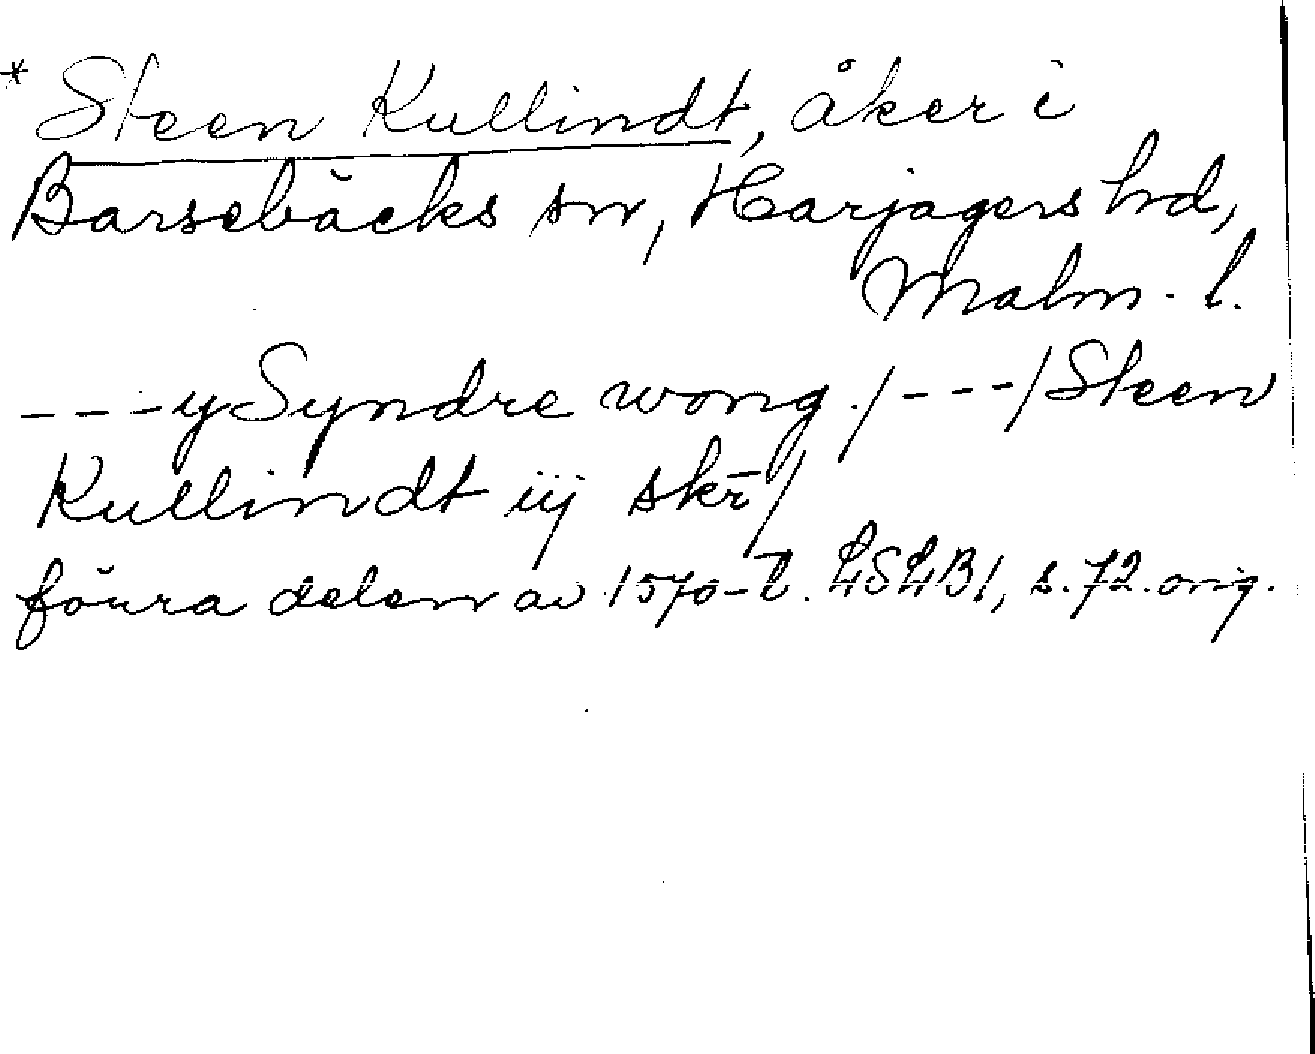 * Steen Kullindt, åker i
Barsebäcks sn, Harjagers hd,
Malm. l.
---y Syndre wong ./---/Steen
Kullindt iij skr̄/
förra delen av 1570-t. LSLB1, s.72.orig.